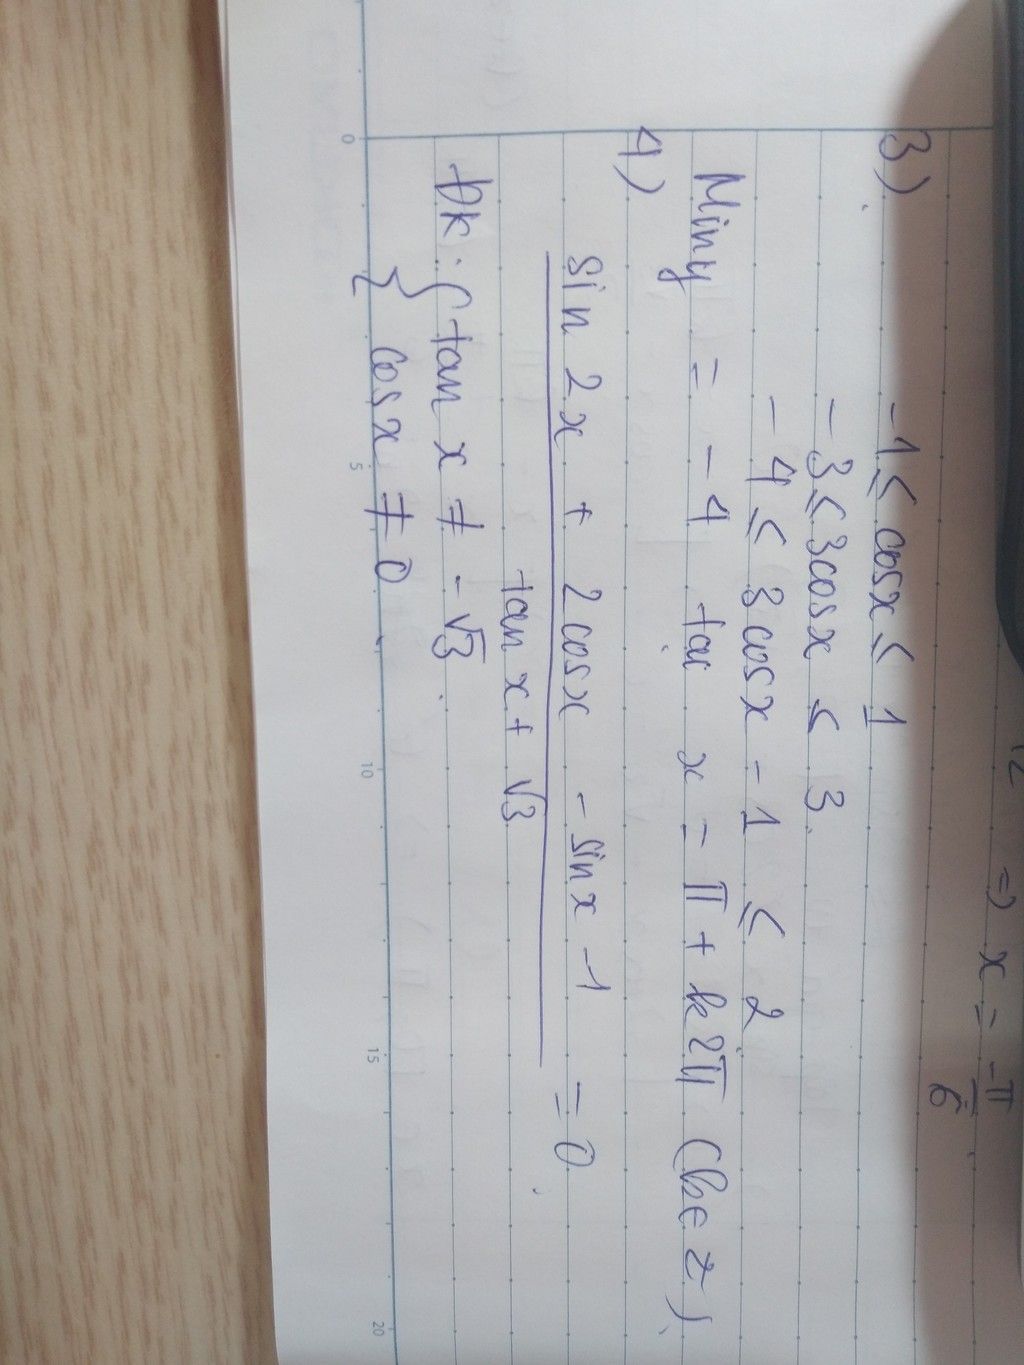 12 => x = -π/6
3) -1 ≤ cosx ≤ 1
-3 ≤ 3cosx ≤ 3
-4 ≤ 3cosx - 1 ≤ 2
Miny = -4 tại x = π + k2π (k ∈ Z)
4)
sin 2x + 2cosx - sin x - 1 = 0
tan x + √3
ĐK: { tan x ≠ -√3
cosx ≠ 0
0 5 10 15 20